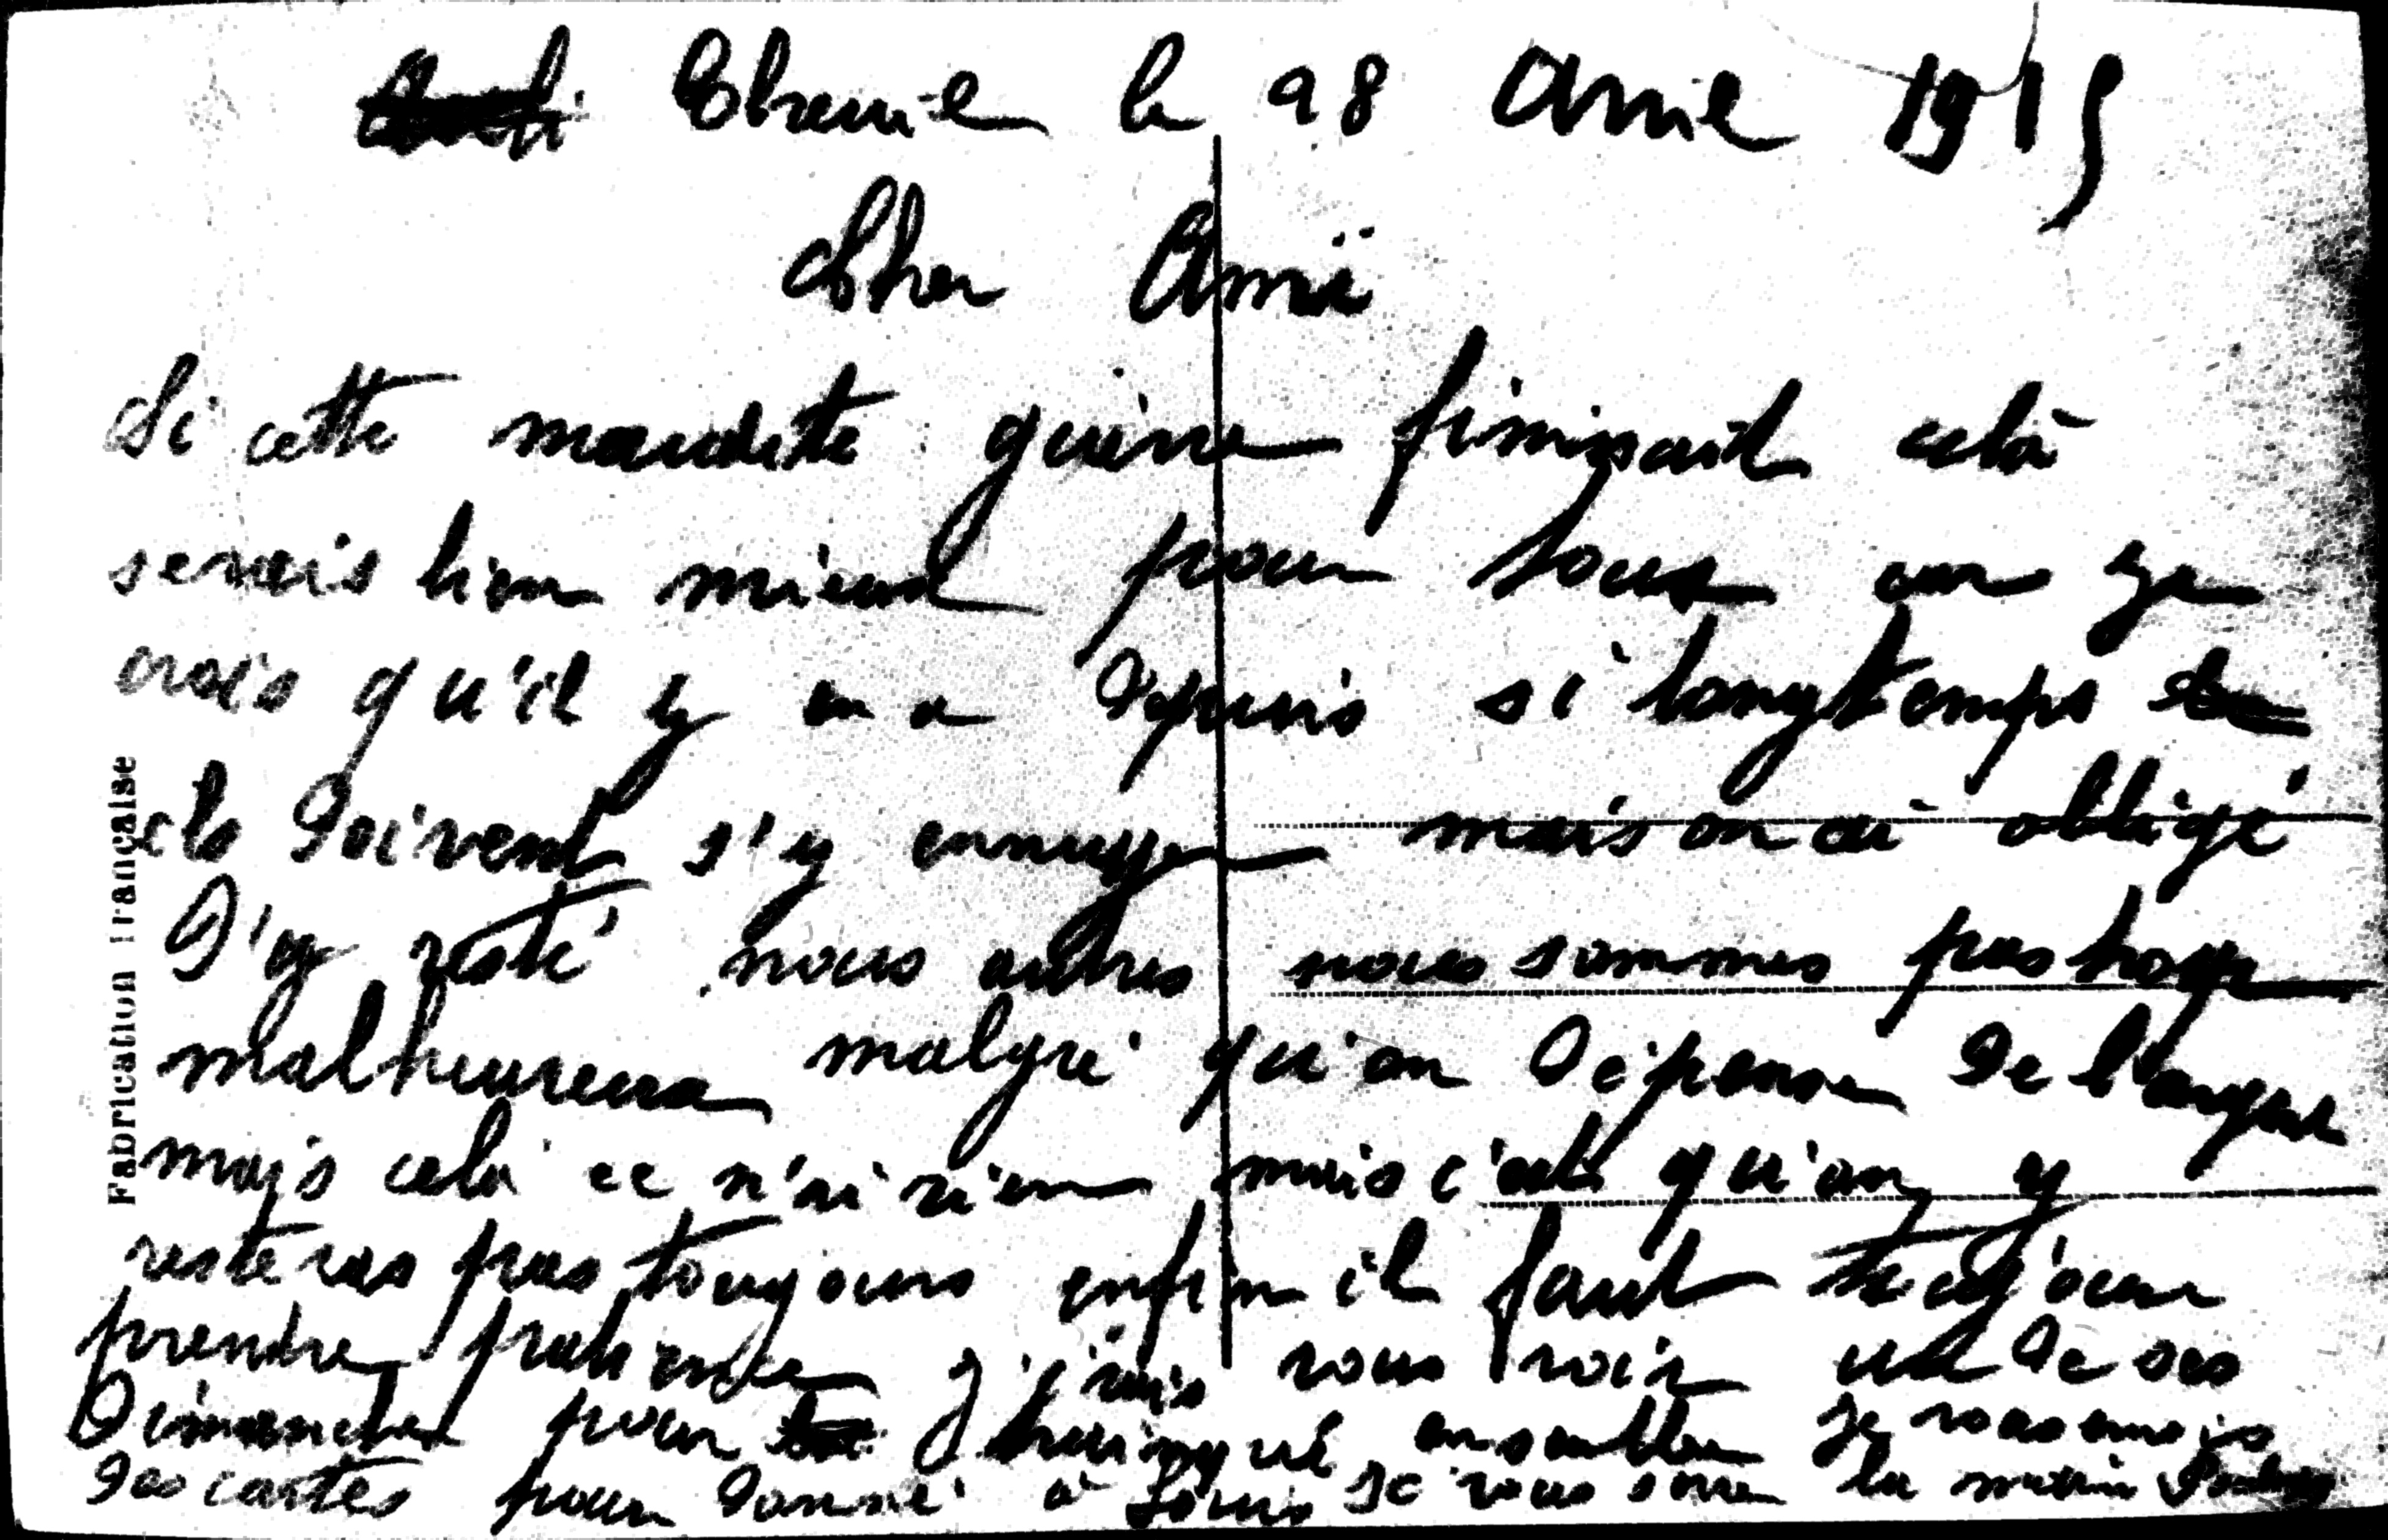 le 28 Avril 1915
Cher Ami
Si cette maudite guèrre finissait celà
serais bien mieux pour tous car je
crois qu'il y en a depuis si longtemps
els doivent s'y ennuyer mais on ai obligé
d'y resté nous autres nous sommes pas trop
malheureux malgré qu'on dépense de l'argent
mais cela ce n'ai rien mais c'est qu'on y
resteras pas toujours enfin il faut
prendre patience j'irais vous voir un de ses
Dimanches pour trinqué ensemble Je vous envois
des cartes pour donné à Louis Je vous serre la main
Fabrication Française